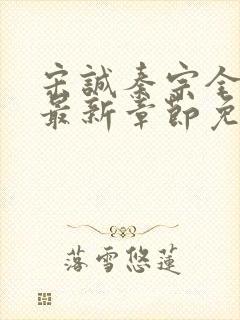 宋誠秦宗全
最新章節免
落雪悠蓮